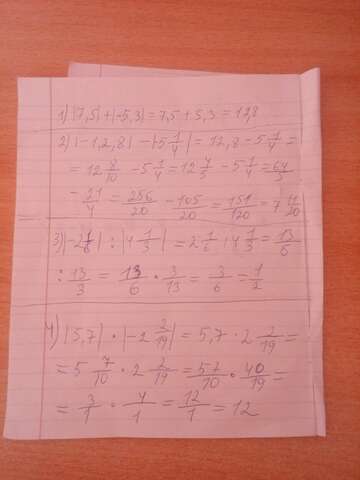 1) |7,5|+|-5,3|=7,5+5,3=12,8
2) |-12,8|-|-5 1/4|=12,8-5 1/4=
=12 8/10-5 1/4=12 4/5-5 1/4=64/5
-21/4=256/20-105/20=151/20=7 11/20
3) |-2 1/6|:|4 1/3|=2 1/6:4 1/3=13/6
:13/3=13/6·3/13=3/6=1/2
4) |5,7|·|-2 2/19|=5,7·2 2/19=
=5 7/10·2 2/19=57/10·40/19=
=3/1·4/1=12/1=12